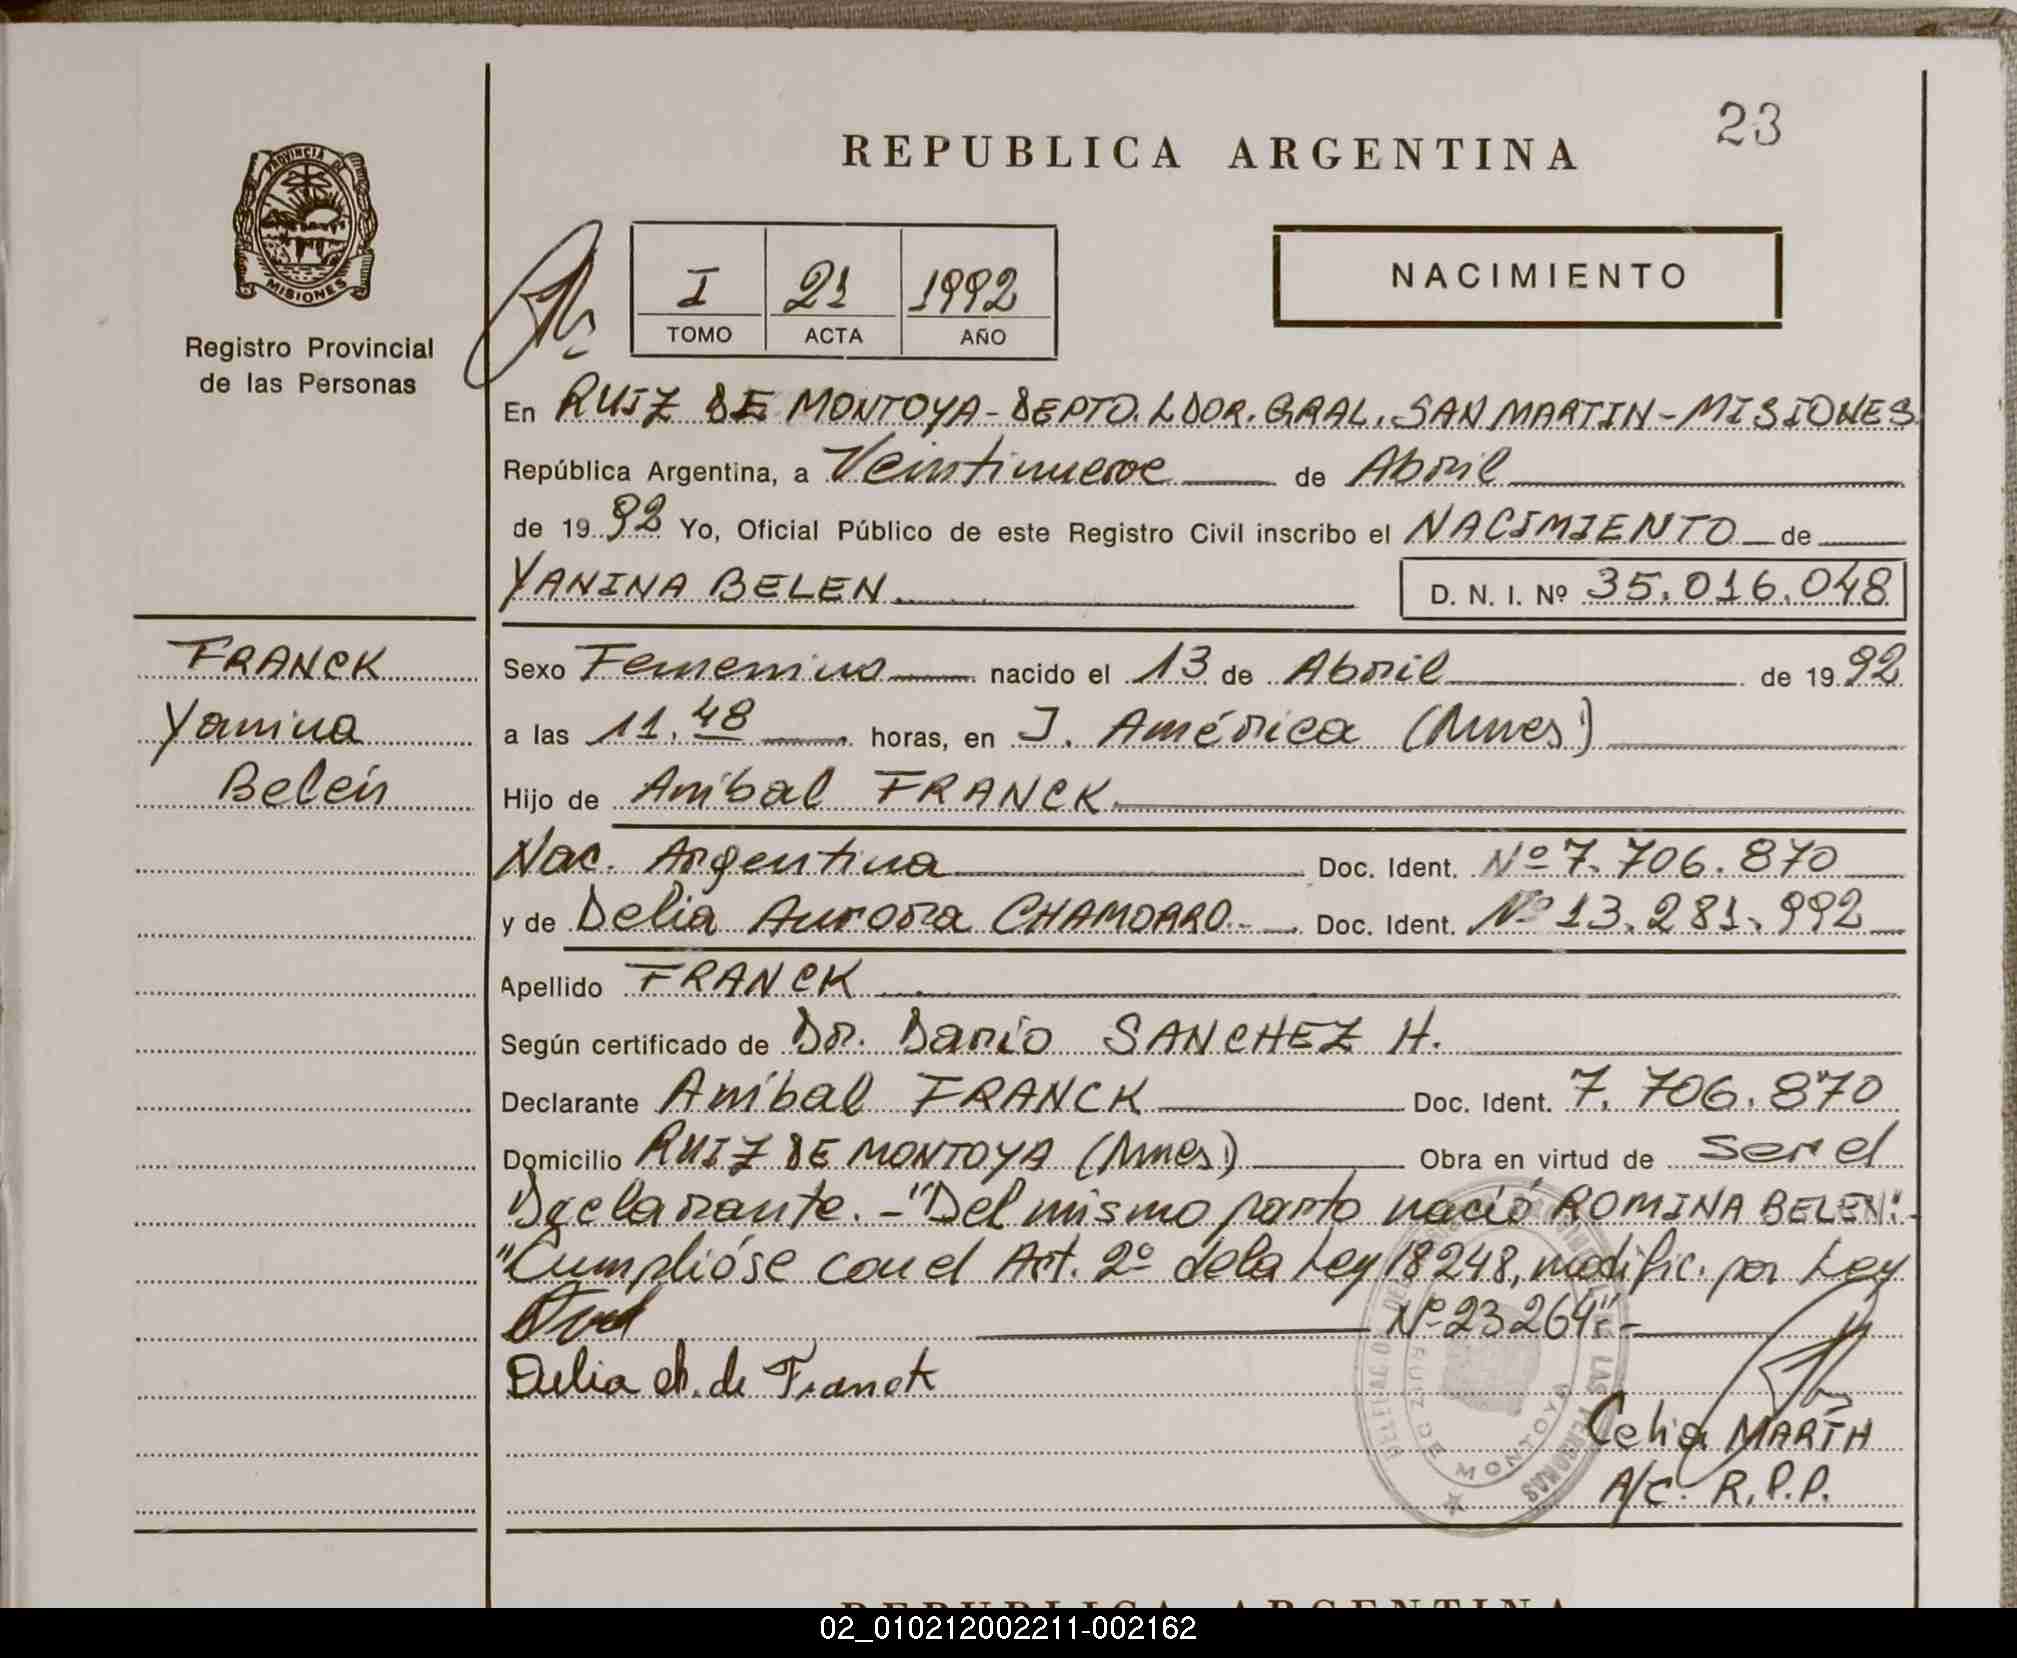 23
REPUBLICA ARGENTINA
PROVINCIA DE
MISIONES
Registro Provincial
de las Personas
I 21 1992
TOMO ACTA AÑO
NACIMIENTO
En RUIZ DE MONTOYA - DEPTO. LDOR. GRAL. SAN MARTIN - MISIONES
República Argentina, a Veintinueve de Abril
de 1992 Yo, Oficial Público de este Registro Civil inscribo el NACIMIENTO de
YANINA BELEN D. N. I. Nº 35.016.048
FRANCK
Yanina
Belén
Sexo Femenino nacido el 13 de Abril de 1992
a las 11,48 horas, en J. América (Mnes)
Hijo de Aníbal FRANCK
Nac. Argentina Doc. Ident. Nº 7.706.870
y de Delia Aurora CHAMORRO Doc. Ident. Nº 13.281.992
Apellido FRANCK
Según certificado de Dr. Dario SANCHEZ H.
Declarante Aníbal FRANCK Doc. Ident. 7.706.870
Domicilio RUIZ DE MONTOYA (Mnes) Obra en virtud de ser el
Declarante. - "Del mismo parto nació ROMINA BELEN".-
"Cumplióse con el Art. 2º de la Ley 18248, modific. por Ley
Nº 23264".-
Delia ch. de Franck
Celia MARTH
A/C. R.P.P.
RUIZ DE MONTOYA
REPUBLICA ARGENTINA
02_010212002211-002162